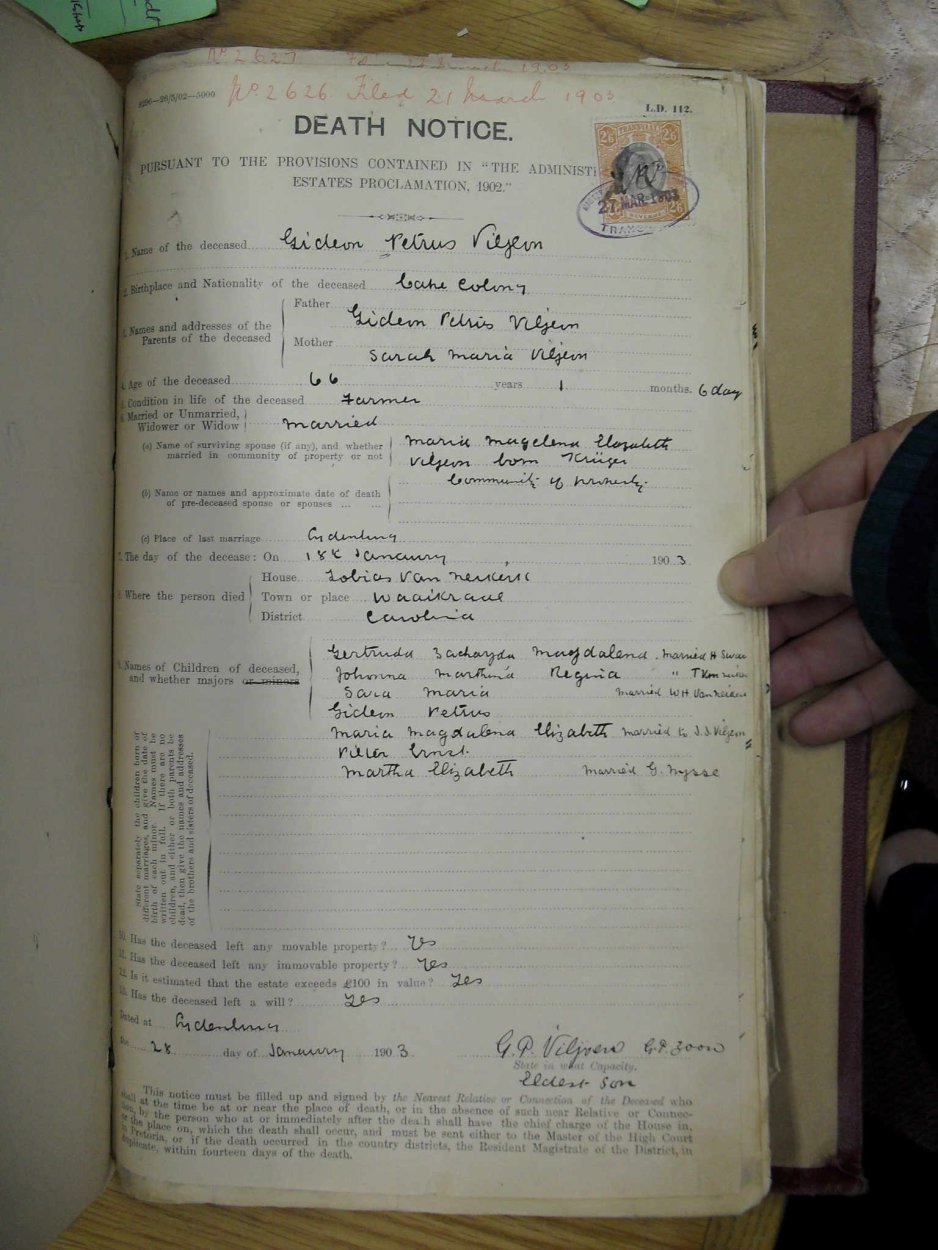 No. 2627
1903
No. 2626 Filed 21 March 1903
8296—26/5/02—5000
L.D. 112.
DEATH NOTICE.
PURSUANT TO THE PROVISIONS CONTAINED IN "THE ADMINIST
ESTATES PROCLAMATION, 1902."
TRANSVAAL
2/6 2/6
27. MAR 1903
REVENUE 2/6
TRANSV
1. Name of the deceased Gideon Petrus Viljoen
2. Birthplace and Nationality of the deceased Cape Colony
3. Names and addresses of the Parents of the deceased
Father Gideon Petrus Viljoen
Mother Sarah Maria Viljoen
4. Age of the deceased 66 years 1 months. 6 day
5. Condition in life of the deceased Farmer
6. Married or Unmarried, Widower or Widow Married
(a) Name of surviving spouse (if any), and whether married in community of property or not
Maria Magelena Elizabeth
Viljoen born Krüger
Community of property.
(b) Name or names and approximate date of death
of pre-deceased spouse or spouses ... ...
(c) Place of last marriage Lydenburg
7. The day of the decease: On 18th Janaury 1903.
8. Where the person died
House Tobias Van Neikerk
Town or place Waaikraal
District Carolina
9. Names of Children of deceased,
and whether majors or minors
Gertruda Zacharyda Magdalena. Married H
Johonna Marthina Regina "
Sara Maria Married WH Van
Gideon Petrus
Maria Magdalena Elizabeth married to J.J. Viljoen
Pieter Ernst.
Martha Elizabeth Married G. Nysse
State separately the children born of
different marriages, and give the date of
birth of each minor. Names must be
written out in full. If there are no
children, and either or both parents be
dead, then give the names and addresses
of the brothers and sisters of deceased.
10. Has the deceased left any movable property? Yes
11. Has the deceased left any immovable property? Yes
12. Is it estimated that the estate exceeds £100 in value? Yes
13. Has the deceased left a will? Yes
Dated at Lydenburg
the 28 day of Janaury 1903.
G.P. Viljoen G.P. Zoon
State in what Capacity.
Eldest Son
This notice must be filled up and signed by the Nearest Relative or Connection of the Deceased who
shall at the time be at or near the place of death, or in the absence of such near Relative or Connec-
tion, by the person who at or immediately after the death shall have the chief charge of the House in,
or the place on, which the death shall occur, and must be sent either to the Master of the High Court
in Pretoria, or if the death occurred in the country districts, the Resident Magistrate of the District, in
duplicate, within fourteen days of the death.